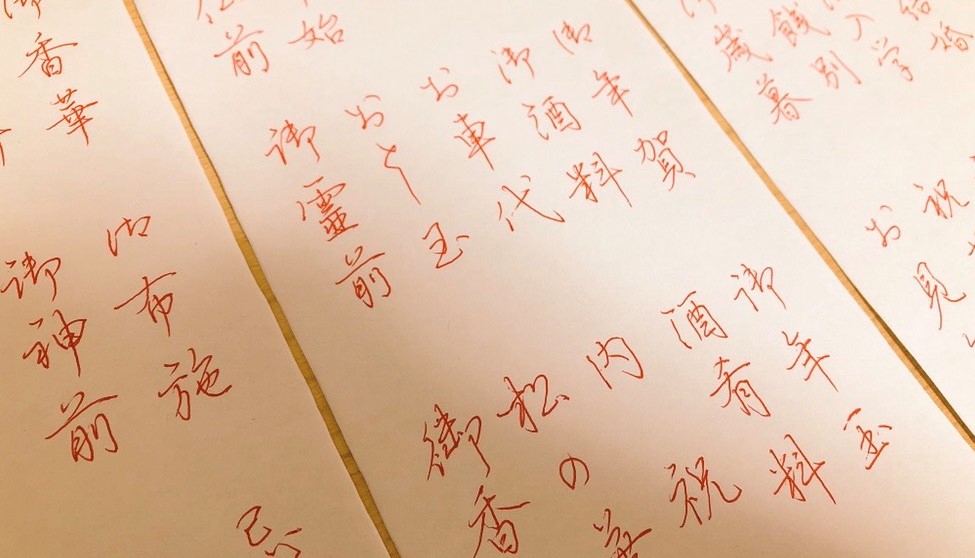 婚
入学
餞別
歳暮
祝
お見
始
前
御年賀
御酒料
お車代
おとし玉
御霊前
御年玉
酒肴料
内祝
松の
御香
香華
御布施
御神前
忌